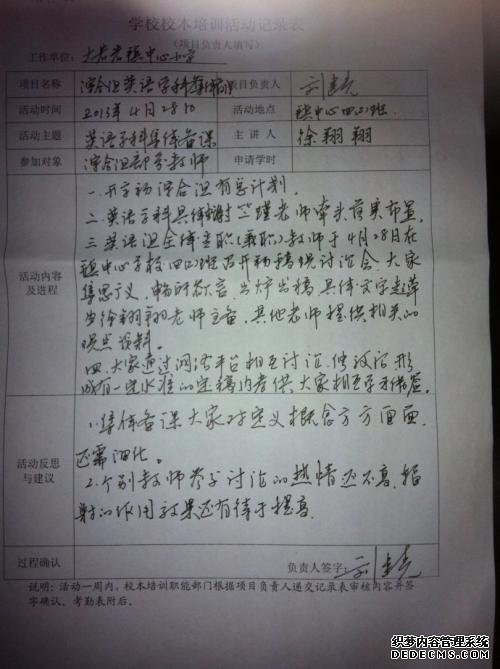 学校校本培训活动记录表
(项目负责人填写)
工作单位: 大若岩镇中心小学
项目名称 综合组英语学科集体备课 项目负责人
活动时间 2013年4月28日 活动地点 镇中心四(2)班
活动主题 英语学科集体备课 主讲人 徐翔翔
参加对象 综合组部分教师 申请学时
活动内容及进程
一.开学初综合组有总计划。
二.英语学科具体谢 老师牵头落实布置。
三.英语组全体专职(兼职)教师于4月28日在
镇中心学校四(2)班召开初稿现讨论会.大家
集思广义,畅所欲言.出炉出稿.具体文字起草
由徐翔翔老师主备,其他老师提供相关的
观点资料。
四.大家通过网络平台相互讨论.修改后形
成有一定水准的定稿内容供大家相互学习借鉴。
活动反思与建议
1.集体备课大家对定义概念方方面面
还需细化。
2.个别教师参与讨论的热情还不高.辐
射的作用效果还有待于提高.
过程确认 负责人签字:
说明:活动一周内,校本培训职能部门根据项目负责人递交记录表审核内容并签
字确认,考勤表附后。
织梦内容管理系统
DEDECMS.COM